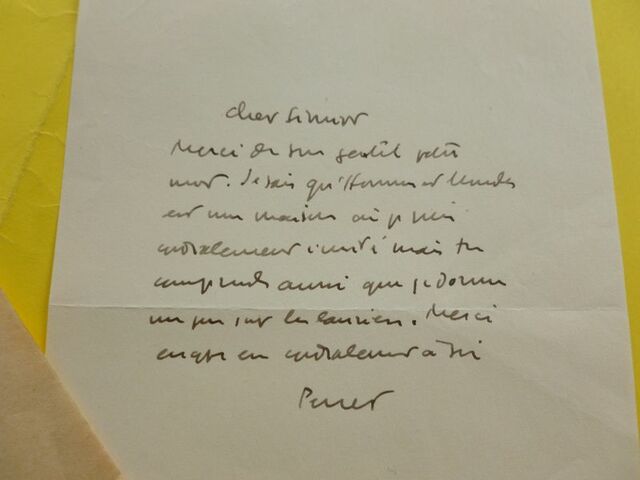 cher Simior
Merci de ton gentil petit
mot. Je sais qu'Hommes et Mondes
est une maison où je suis
cordialement invité mais tu
comprends aussi que je dorme
un peu sur les lauriers. Merci
encore en cordialement à toi